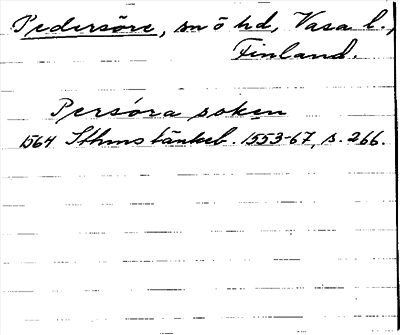 Pedersöre, sn ö hd, Vasa l.,
Finland.
Persöra soken
1564 Sthms tänkeb. 1553-67, s. 266.